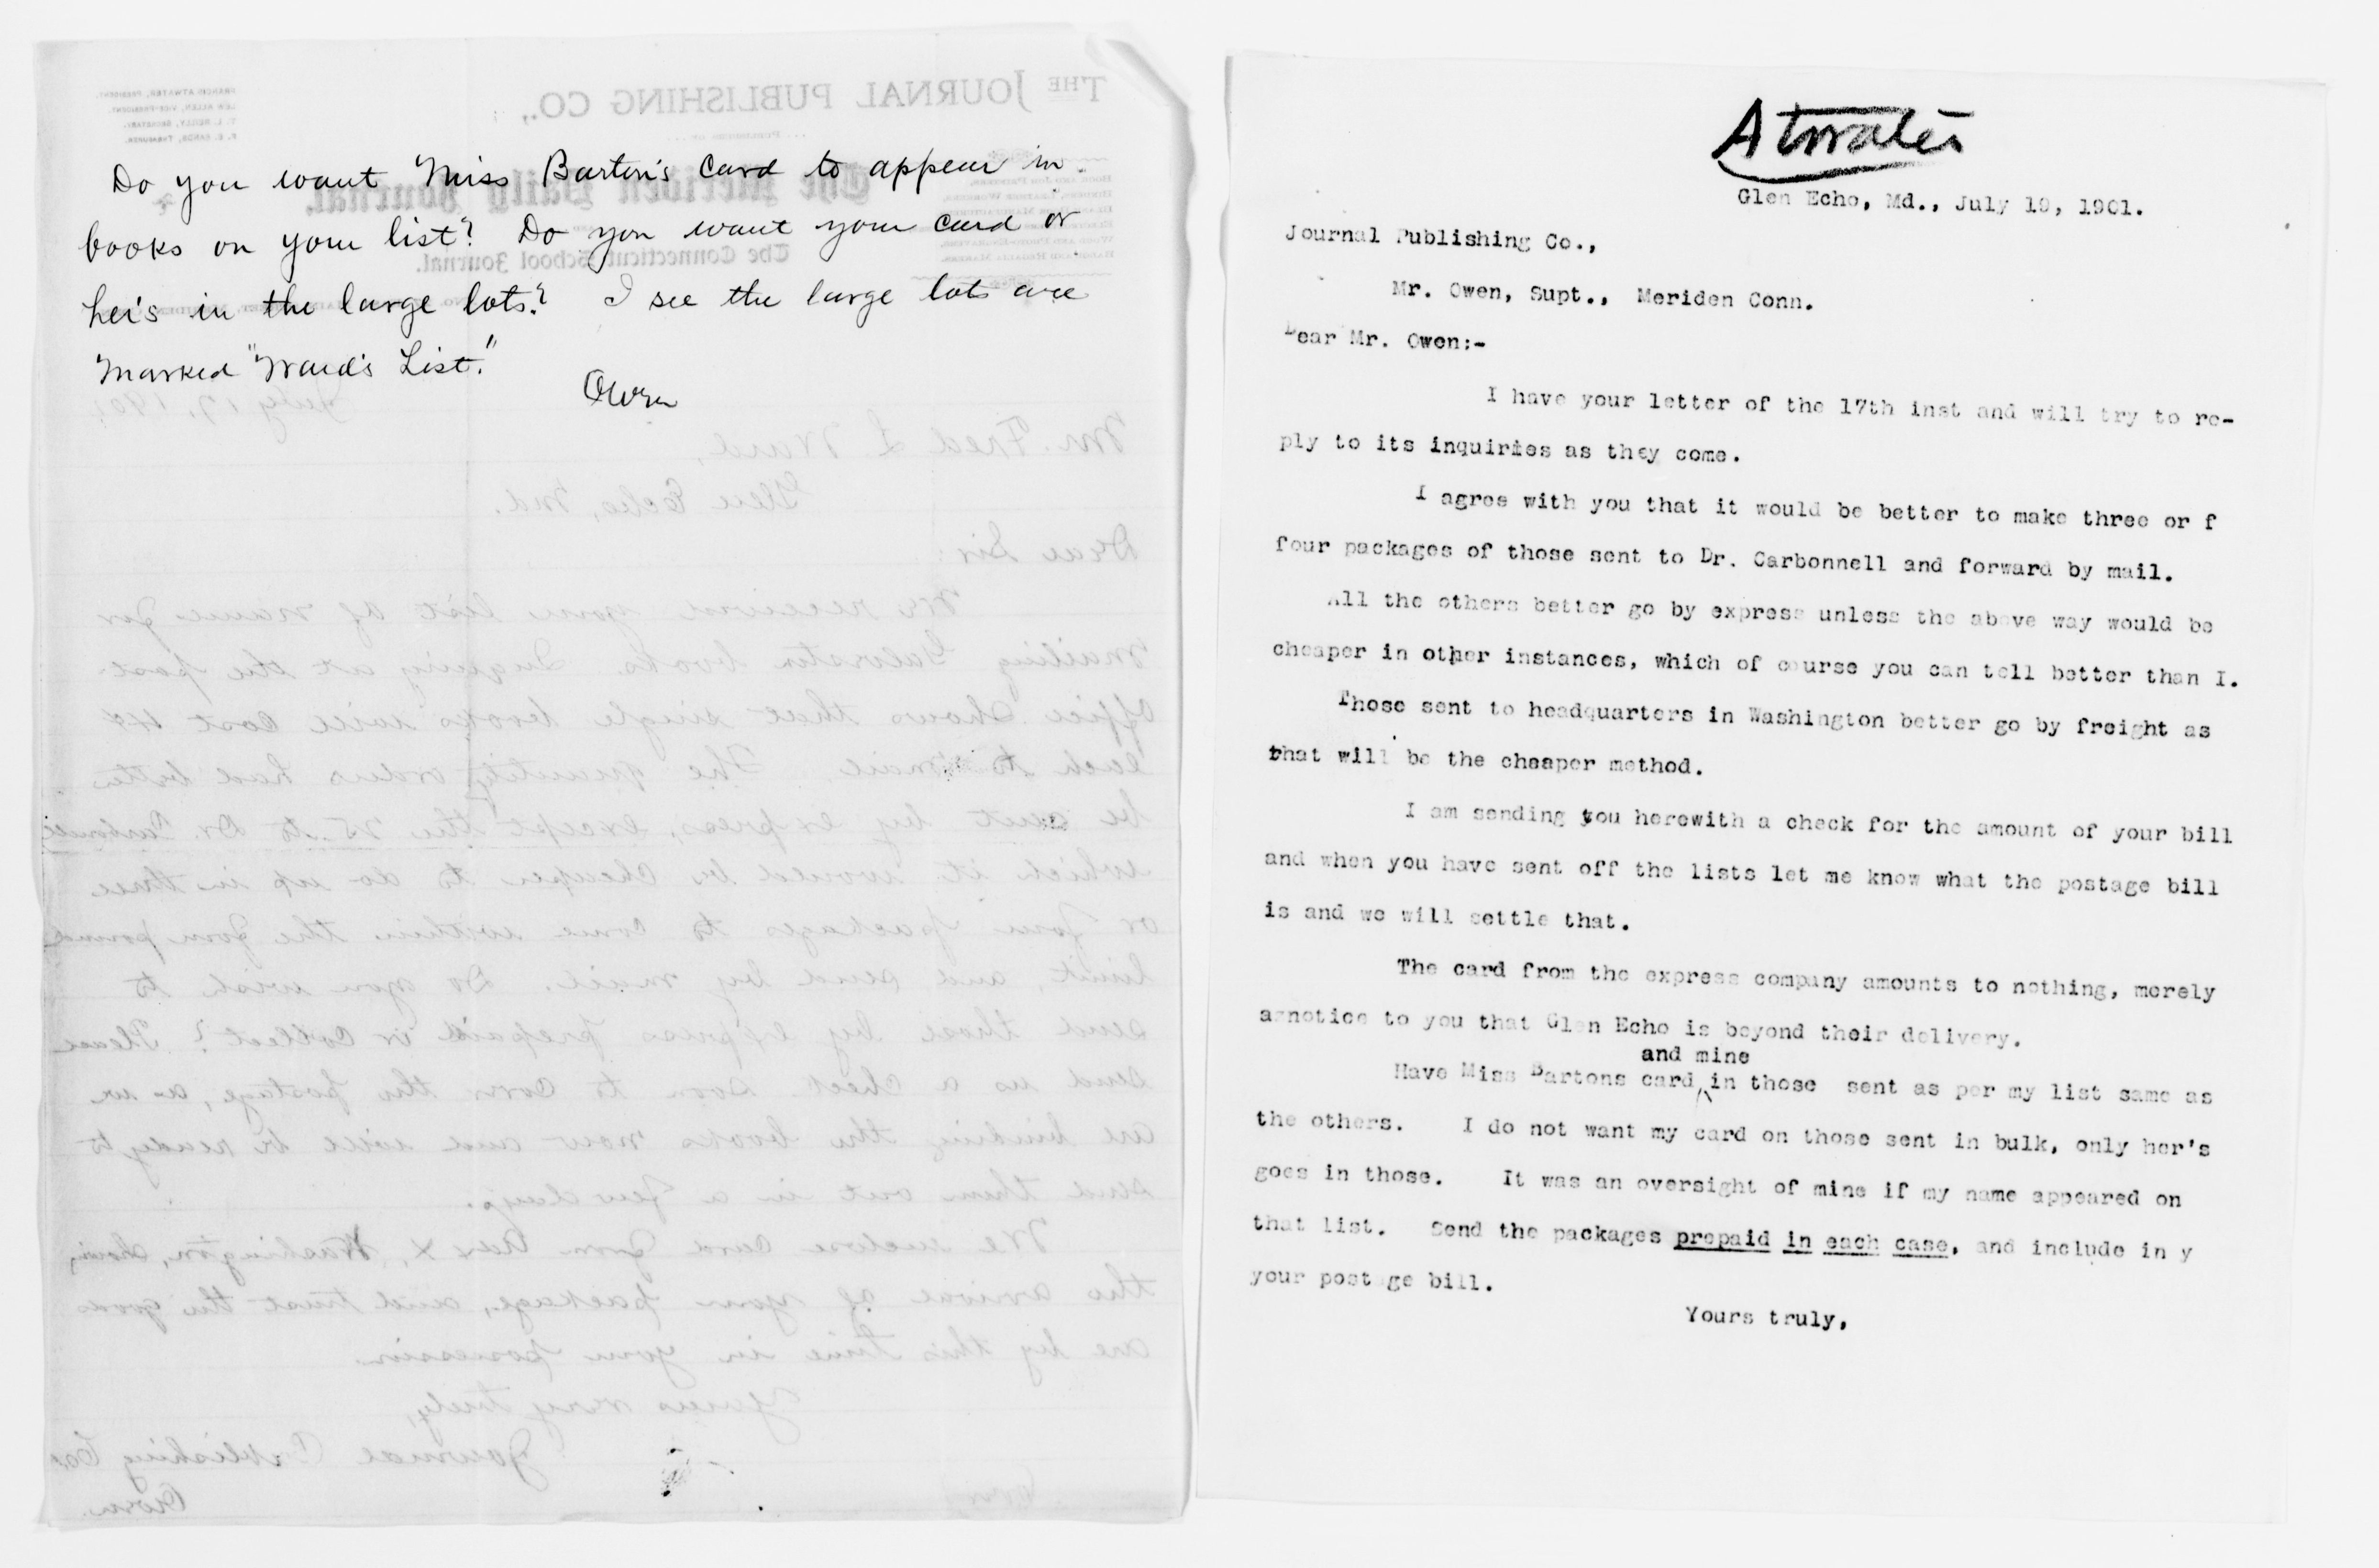 Do you want Miss Barton's card to appear in
books on your list? Do you want your card or
her's in the large lots? I see the large lots are
marked "Ward's List."
Owen
THE JOURNAL PUBLISHING CO.,
The Meriden Daily Journal.
The Connecticut School Journal.
FRANCIS ATWATER, PRESIDENT.
LEW ALLEN, VICE-PRESIDENT.
T. L. REILLY, SECRETARY.
F. E. SANDS, TREASURER.
July 17, 1901
Mr. Fred L Ward,
Glen Echo, Md.
Dear Sir:
We received your list of names for
mailing Galveston books. Inquiry at the post-
office shows that single books will cost 4¢
each to mail. The quantity orders had better
be sent by express, except the 25 to Dr. Carbonell
which it would be cheaper to do up in three
or four packages to come within the four pound
limit, and send by mail. Do you wish to
send those by express prepaid or collect? Please
send us a check soon to cover the postage, as we
are binding the books now and will be ready to
send them out in a few days.
We enclose card from Washington,
the arrival of your package, and trust the goods
are by this time in your possession.
Yours very truly,
Journal Publishing Co.
Owen.
Atwater
Glen Echo, Md., July 19, 1901.
Journal Publishing Co.,
Mr. Owen, Supt., Meriden Conn.
Dear Mr. Owen:-
I have your letter of the 17th inst and will try to re-
ply to its inquiries as they come.
I agree with you that it would be better to make three or f
four packages of those sent to Dr. Carbonnell and forward by mail.
All the others better go by express unless the above way would be
cheaper in other instances, which of course you can tell better than I.
Those sent to headquarters in Washington better go by freight as
that will be the cheaper method.
I am sending you herewith a check for the amount of your bill
and when you have sent off the lists let me know what the postage bill
is and we will settle that.
The card from the express company amounts to nothing, merely
a notice to you that Glen Echo is beyond their delivery.
and mine
Have Miss Bartons card in those sent as per my list same as
the others. I do not want my card on those sent in bulk, only her's
goes in those. It was an oversight of mine if my name appeared on
that list. Send the packages prepaid in each case, and include in y
your postage bill.
Yours truly,